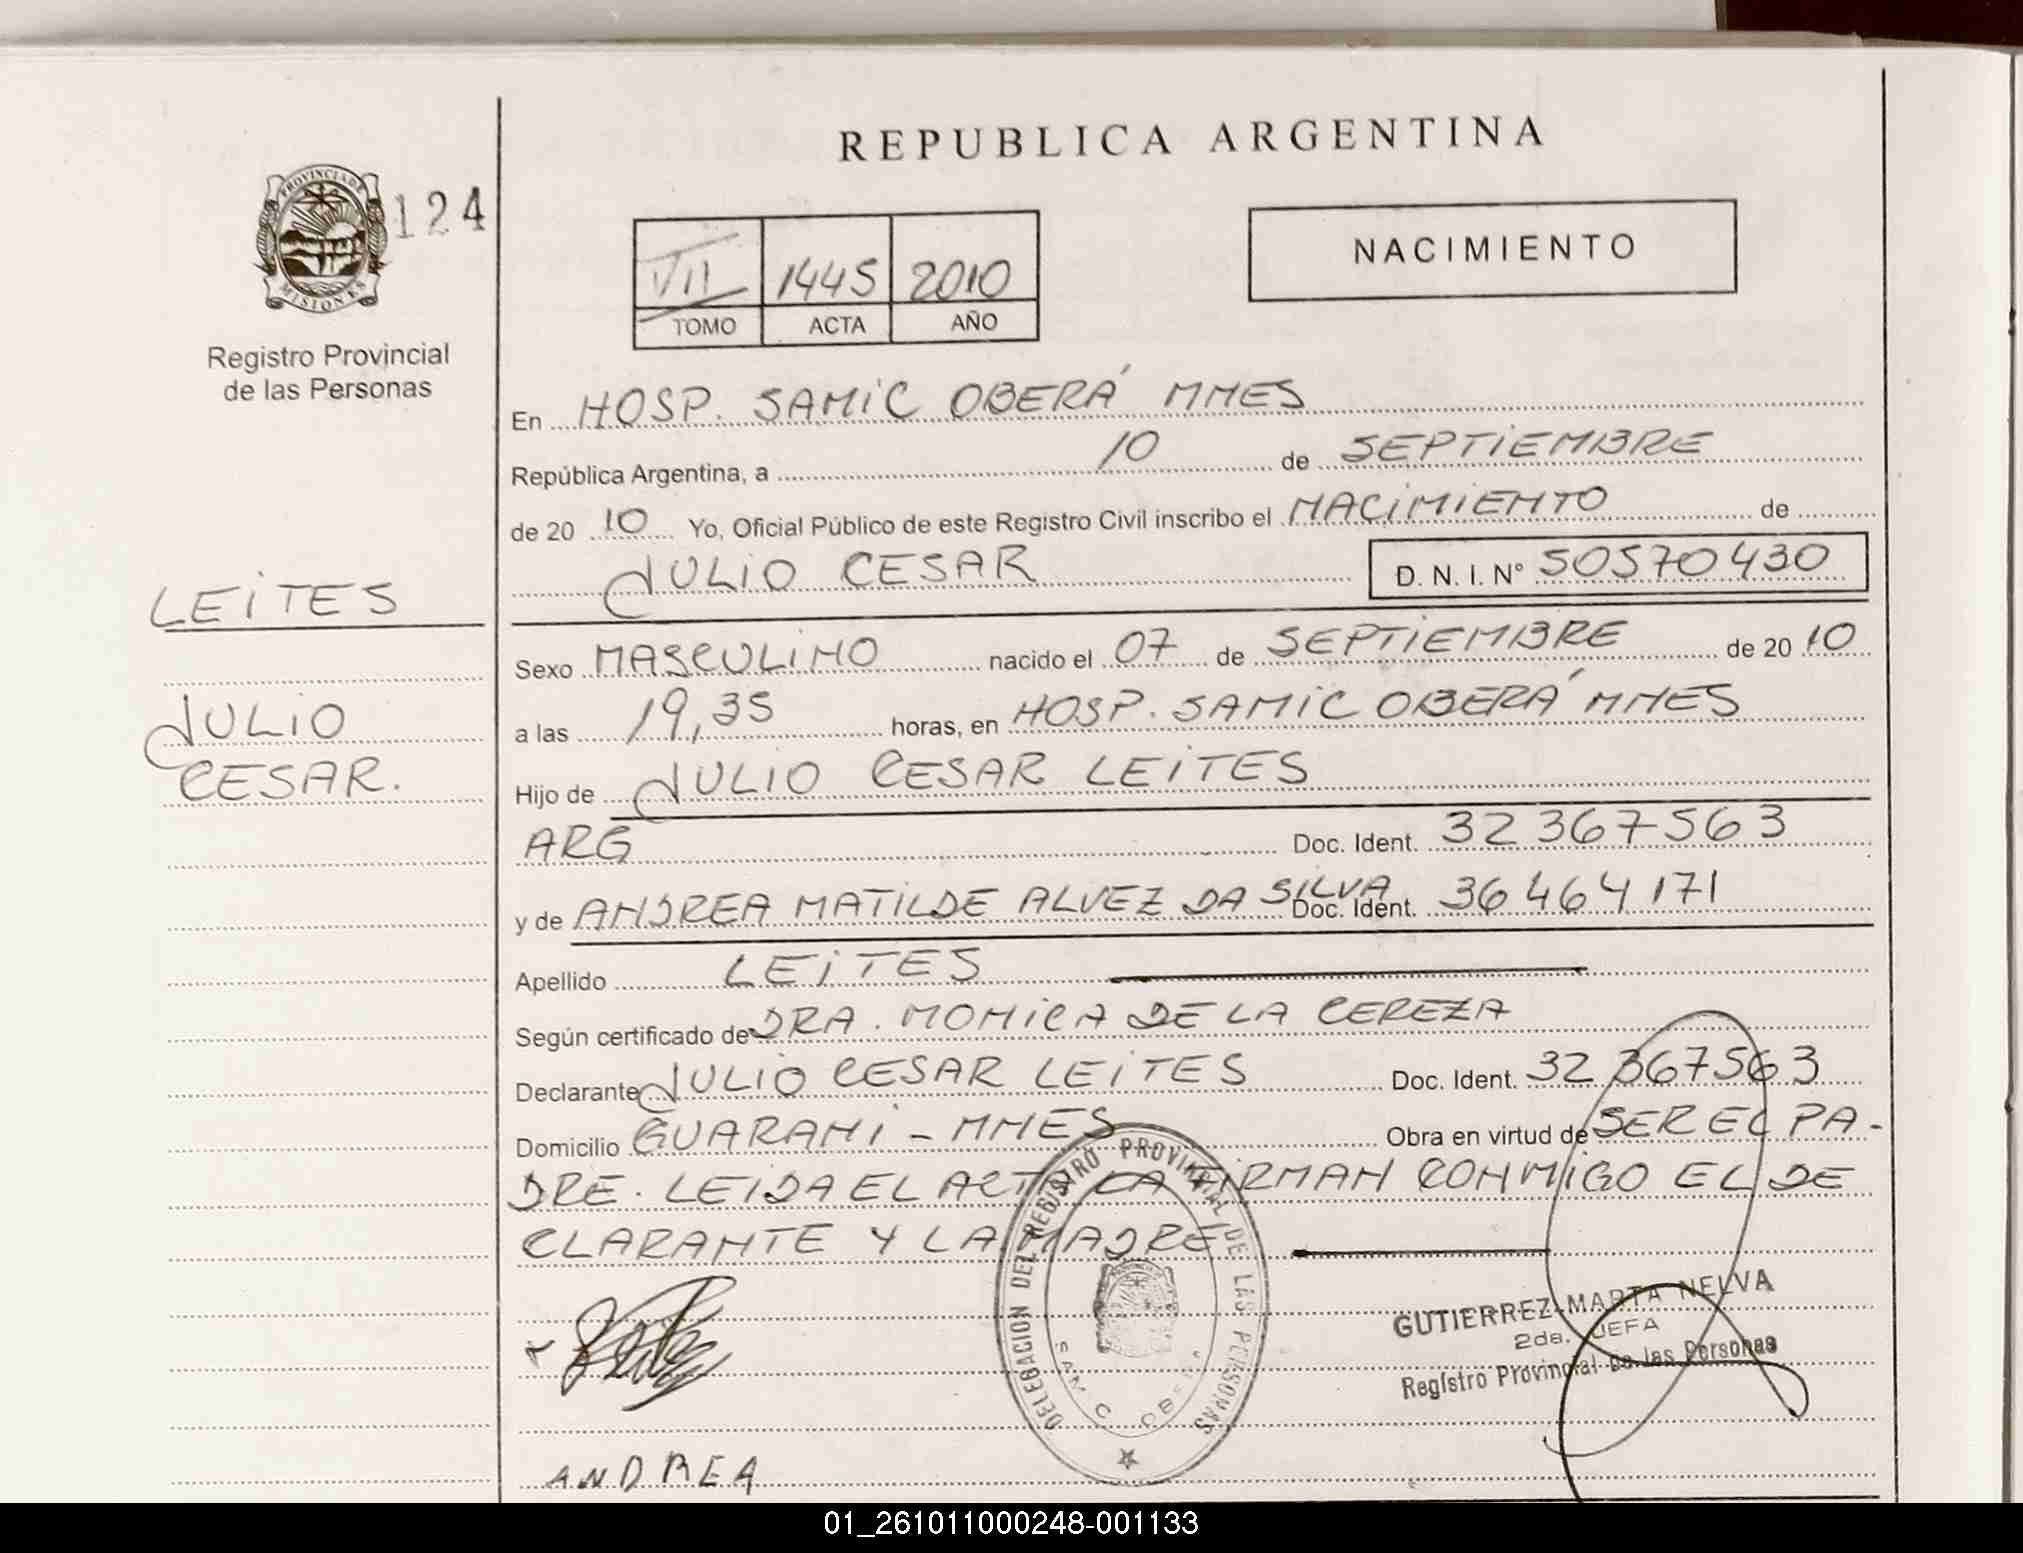 REPUBLICA ARGENTINA
PROVINCIA DE
MISIONES
124
Registro Provincial
de las Personas
VII 1445 2010
TOMO ACTA AÑO
NACIMIENTO
En HOSP. SAMIC OBERÁ MNES
República Argentina, a 10 de SEPTIEMBRE
de 20 10 Yo, Oficial Público de este Registro Civil inscribo el NACIMIENTO de
JULIO CESAR D. N. I. N° 50570430
LEITES
Sexo MASCULINO nacido el 07 de SEPTIEMBRE de 20 10
JULIO
a las 19,35 horas, en HOSP. SAMIC OBERÁ MNES
CESAR.
Hijo de JULIO CESAR LEITES
ARG Doc. Ident. 32 367563
y de ANDREA MATILDE ALVEZ DA SILVA Doc. Ident. 36 464 171
Apellido LEITES
Según certificado de DRA. MONICA DE LA CEREZA
Declarante JULIO CESAR LEITES Doc. Ident. 32 367563
Domicilio GUARANI - MNES Obra en virtud de SER EL PA-
DRE. LEIDA EL ACTA LA FIRMAN CONMIGO EL DE
CLARANTE Y LA MADRE
DELEGACION DEL REGISTRO PROVINCIAL DE LAS PERSONAS
GUTIERREZ MARTA NELVA
2da. JEFA
Registro Provincial de las Personas
ANDREA
01_261011000248-001133